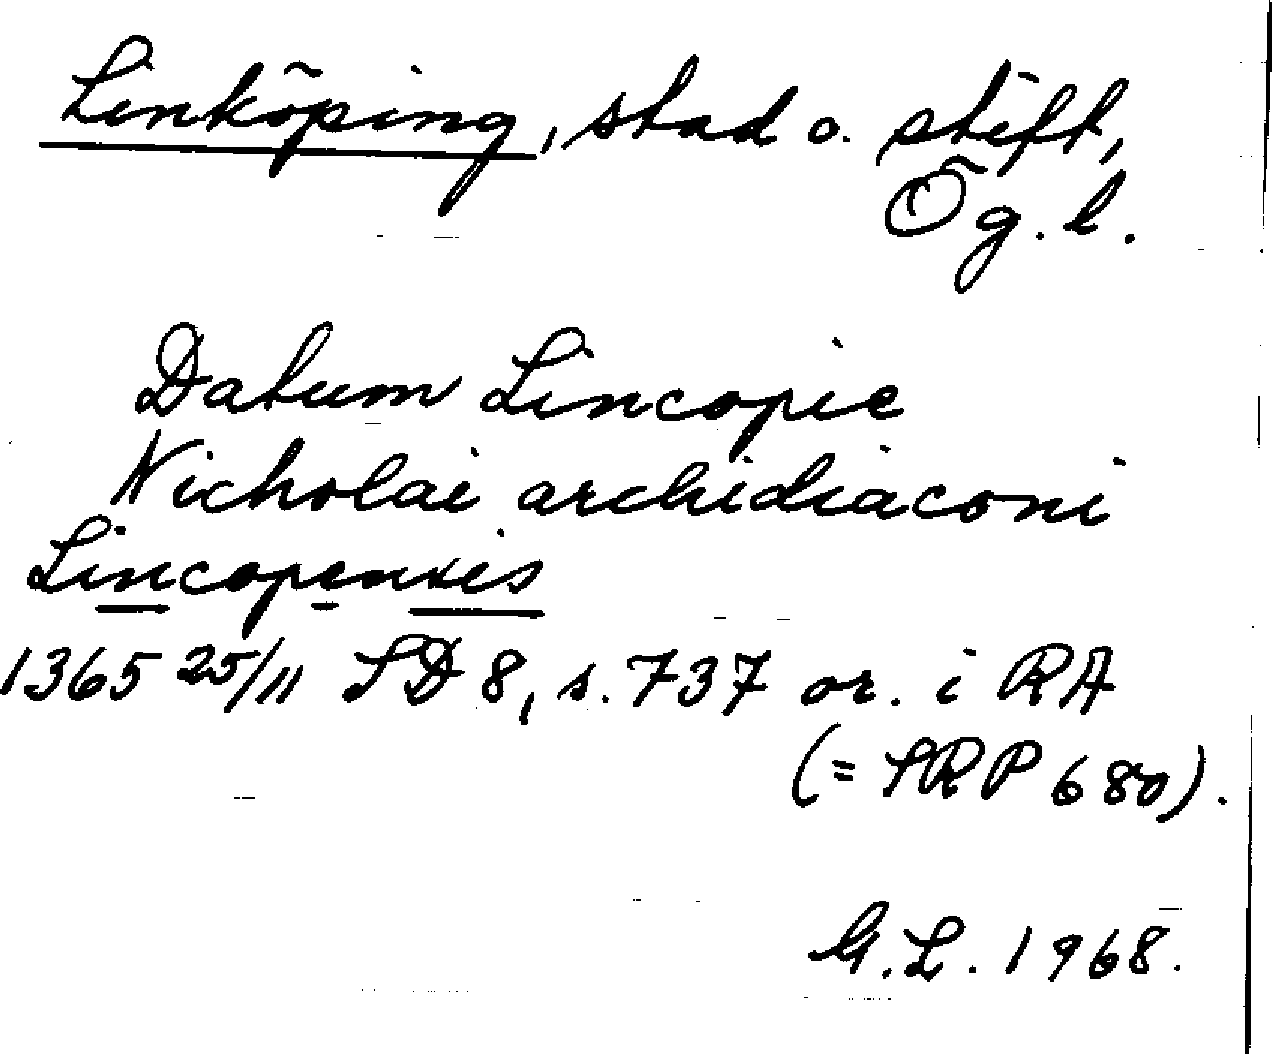 Linköping, stad o. stift,
Ög. l.
Datum Lincopie
Nicholai archidiaconi
Lincopensis
1365 25/11 SD 8, s. 737 or. i RA
(= SRP 680).
G.L. 1968.